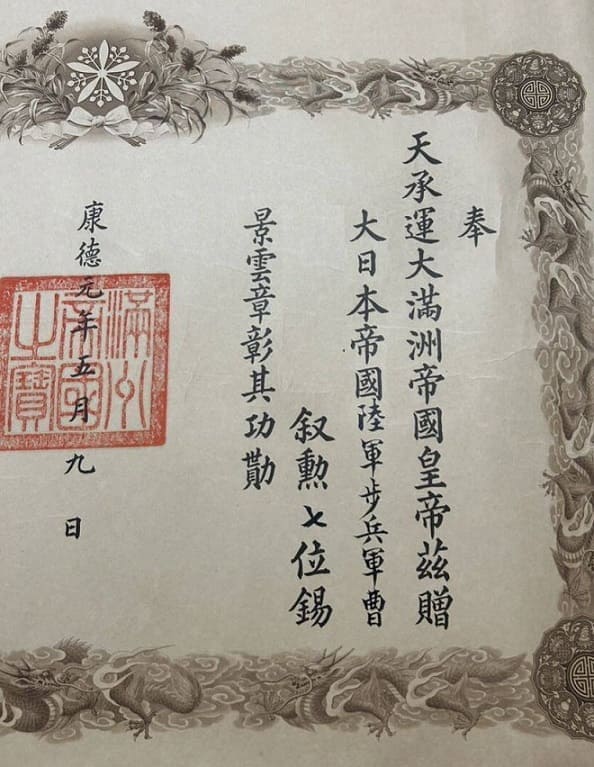 奉
天承運大滿洲帝國皇帝茲贈
大日本帝國陸軍步兵軍曹
叙勲七位錫
景雲章彰其功勩
康德元年五月九日
滿州
帝國
之寶